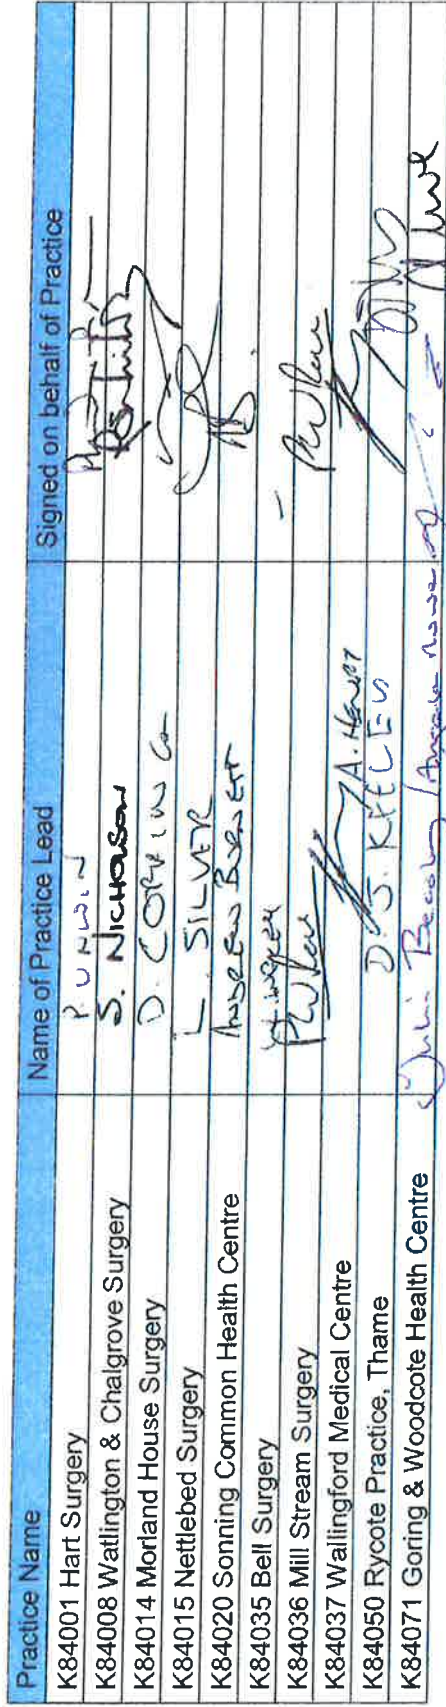 Practice Name Name of Practice Lead Signed on behalf of Practice
K84001 Hart Surgery P. UNWIN
K84008 Watlington & Chalgrove Surgery S. NICHOLSON
K84014 Morland House Surgery D. COPPING
K84015 Nettlebed Surgery L. SILVER
K84020 Sonning Common Health Centre ANDREW BURNETT
K84035 Bell Surgery
K84036 Mill Stream Surgery
K84037 Wallingford Medical Centre A. Hewitt
K84050 Rycote Practice, Thame D. J. KEELEY
K84071 Goring & Woodcote Health Centre Julie / Angela